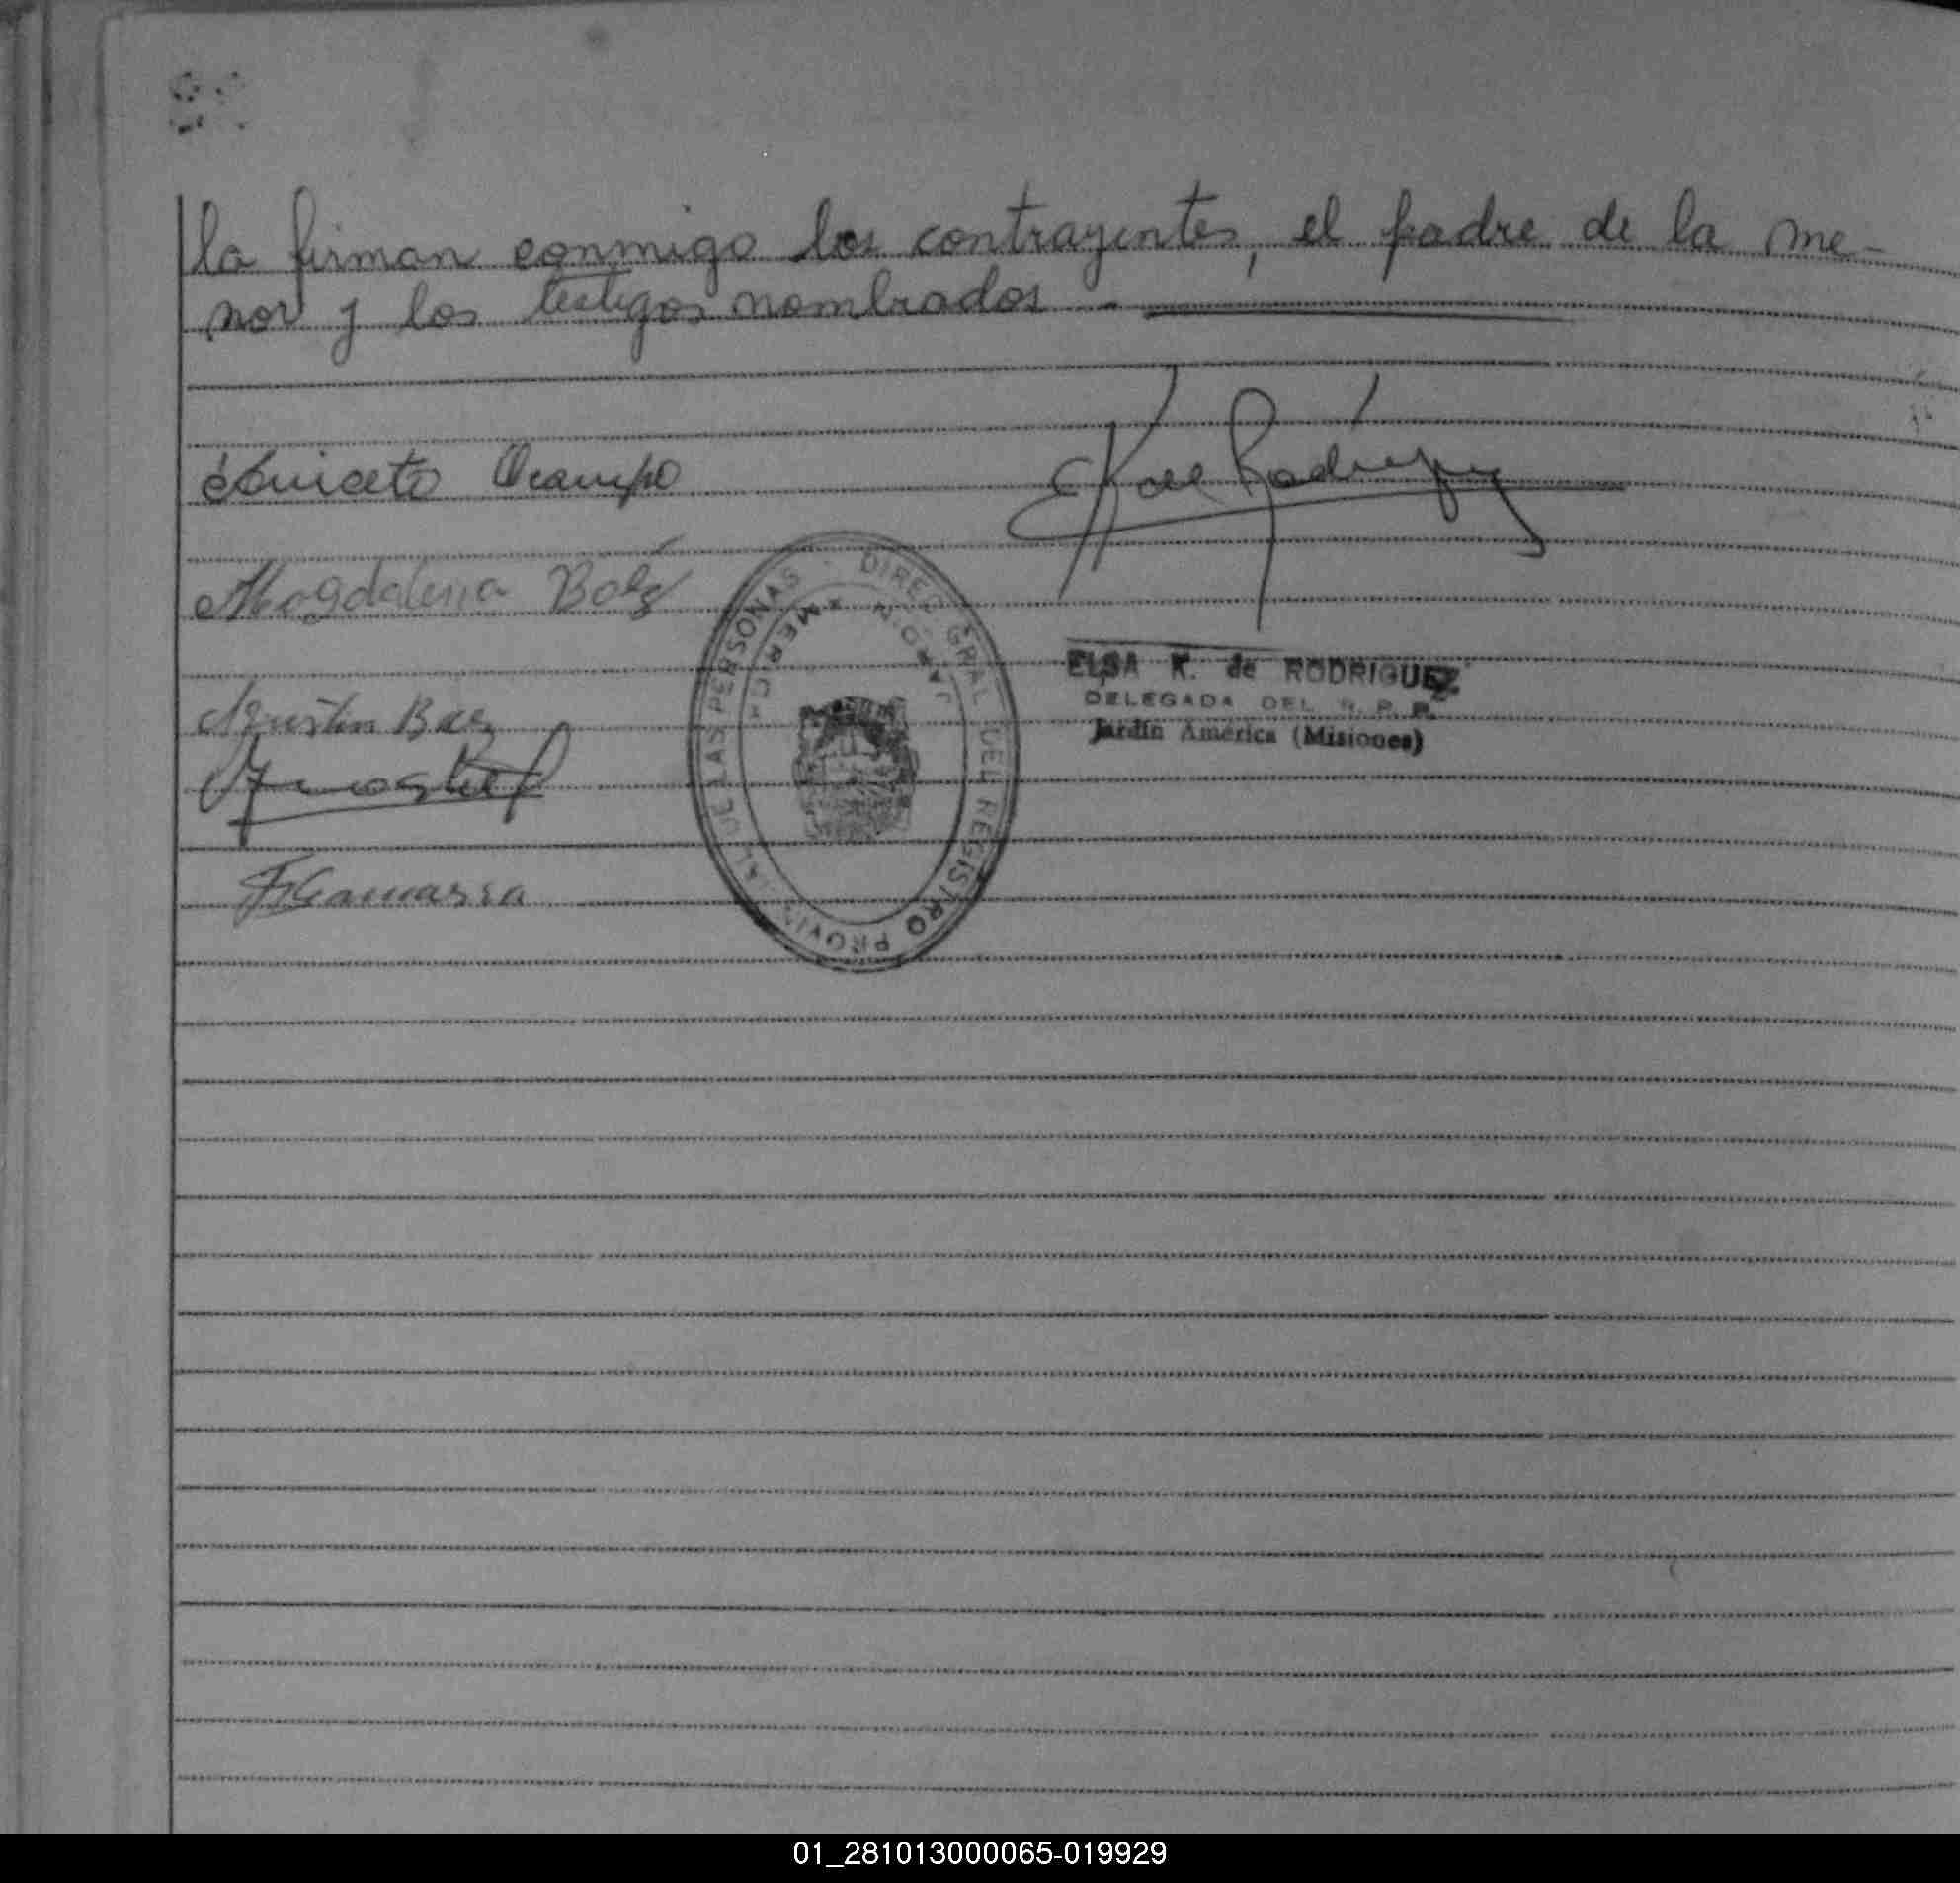 la firman conmigo los contrayentes, el padre de la me-
nor y los testigos nombrados -
Aniceto Ocampo
E K de Rodriguez
Magdalena Báez
Agustin Baez
ELSA K. de RODRIGUEZ
DELEGADA DEL R. P. P.
Jardín América (Misiones)
DIREC. GRAL. DEL REGISTRO PROVINCIAL DE LAS PERSONAS
JARDIN AMERICA
F Gamarra
01_281013000065-019929